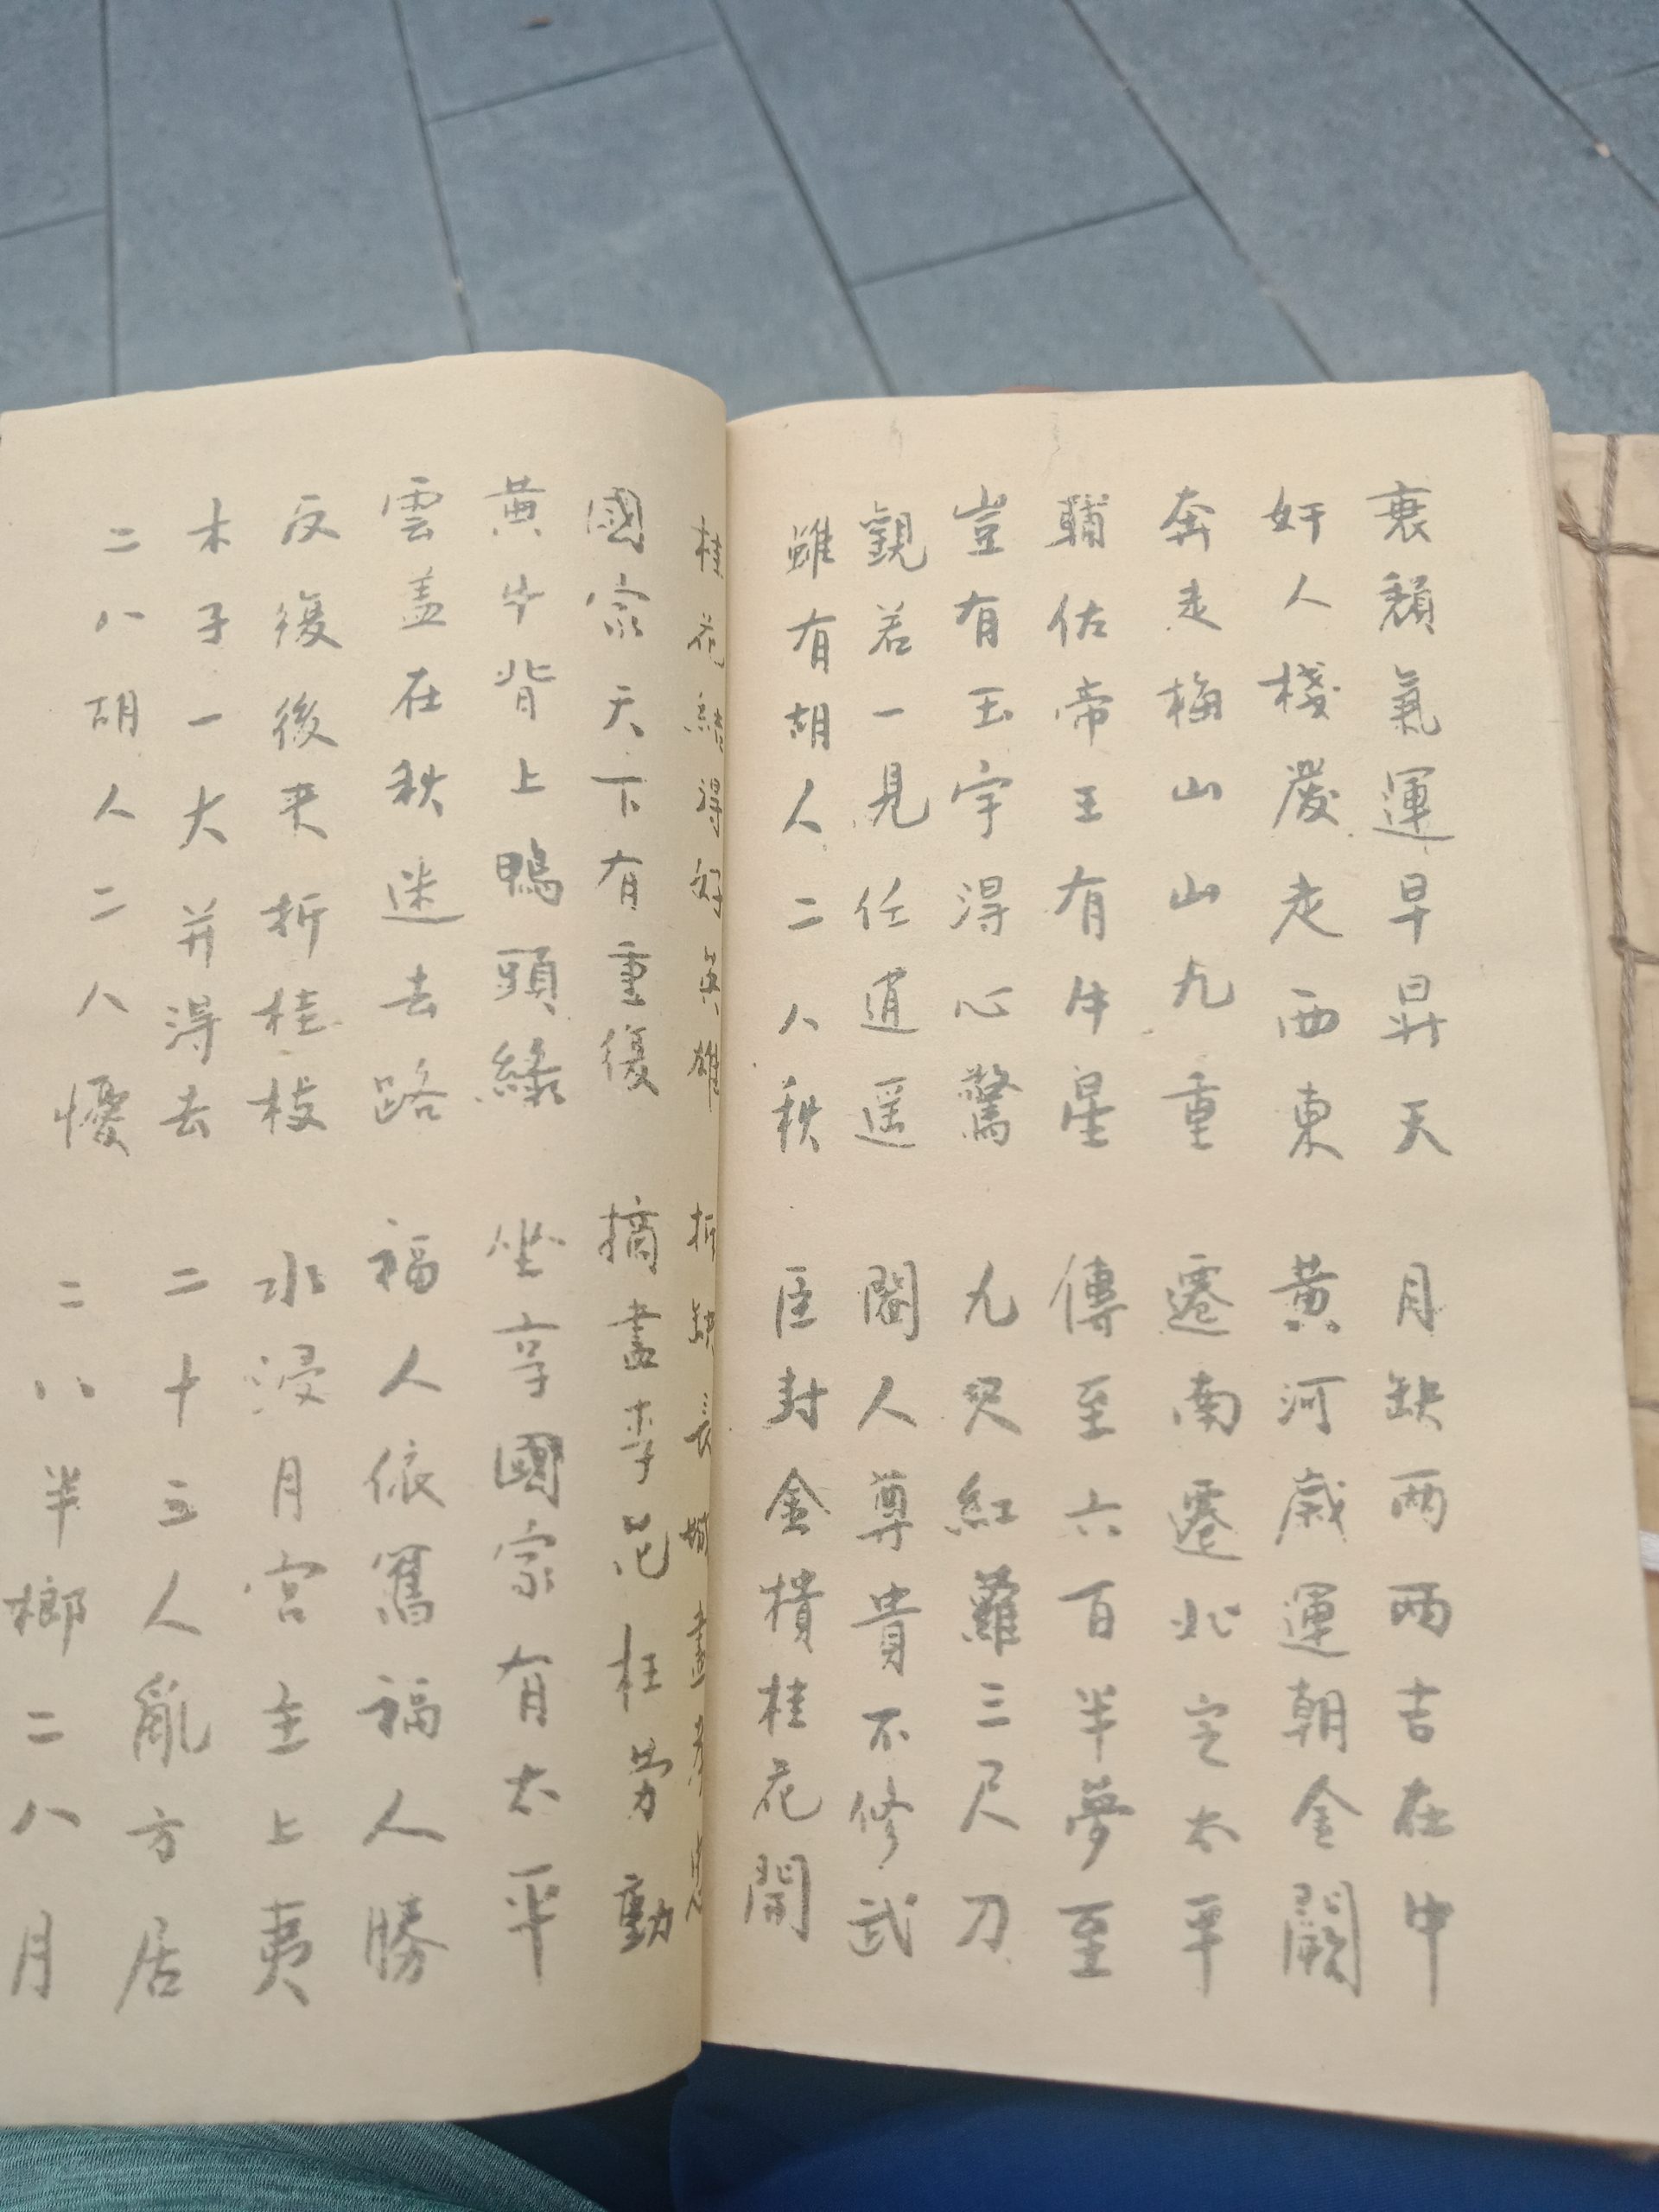 衰頹氣運早昇天 月缺兩兩吉在中
奸人棧嚴走西東 黄河歲運朝金闕
奔走梅山山九重 遷南遷北定太平
輔佑帝王有牛星 傳至六百半夢至
豈有玉宇得心驚 九尺紅蘿三尺刀
觀若一見任逍遥 閣人尊貴不修武
雖有胡人二人秩 臣封金樻桂花開
桂花結得好英雄 折缺長城盡孝忠
國家天下有重復 摘盡李花枉劳動
黄牛背上鴨頭綠 坐享國家有太平
雲盖在秋迷去路 福人依舊福人勝
反復後来折桂枝 水浸月宫主上夷
木子一大并得去 二十五人亂方居
二八胡人二八憂 二八半榔二八月